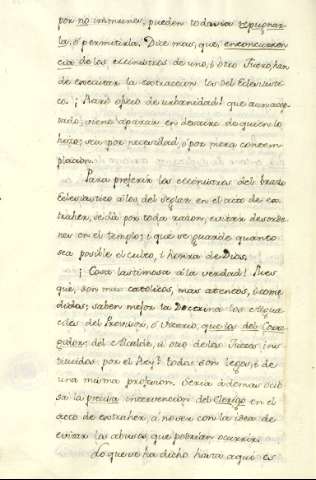 por no inmunes, pueden todavia repugnar-
la, ó permitirla. Dice mas, que, en concurren-
cia de los Ministros de uno, i otro Fuero, han
de executar la extraccion los del Eclesiasti-
co. ¡Raro oficio de urbanidad! que aunque
viene a parar en desaire de quien lo
hizo, sea por necesidad, ó por mera contem-
placion.
Para preferir los Ministros del brazo
Eclesiastico á los del seglar en el acto de ex-
traher, se dá por toda razon, evitar desorde-
nes en el templo; i que se guarde quanto
sea posible el culto, i honra de Dios.
¡Cosa lastimosa á la verdad! Pues
que, son mas catolicos, mas atentos, i come-
didos; saben mejor la Doctrina los
del Provisor, ó Vicario, que los del Corre-
gidor, del Alcalde, ú otro de los Jueces ins-
tituidos por el Rey? todos son legos, i de
una misma profesion. Seria ademas ocio-
sa la precisa intervencion del Clerigo en el
acto de extraher, á no ser con la idea de
evitar los abusos que podrian ocurrir.
Lo que se ha dicho hasta aqui es